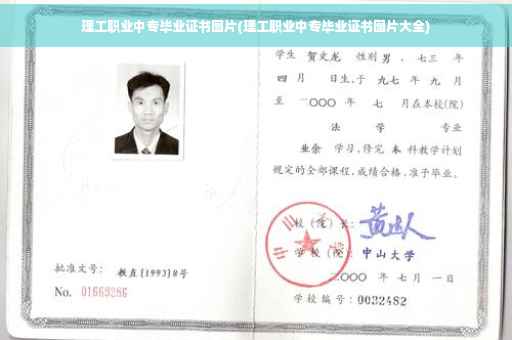 理工职业中专毕业证书图片(理工职业中专毕业证书图片大全)
学生 贺文龙 性别 男，七三 年
四 月 日生，于 九七 年 九 月
至 二〇〇〇 年 七 月在本校(院)
法 学 专业
业余 学习，修完 本 科教学计划
规定的全部课程，成绩合格，准予毕业。
校(院)长：
学校(院)：中山大学
二〇〇〇 年 七 月 一 日
学校编号：0032482
批准文号：教直[1993]8号
No. 01669286